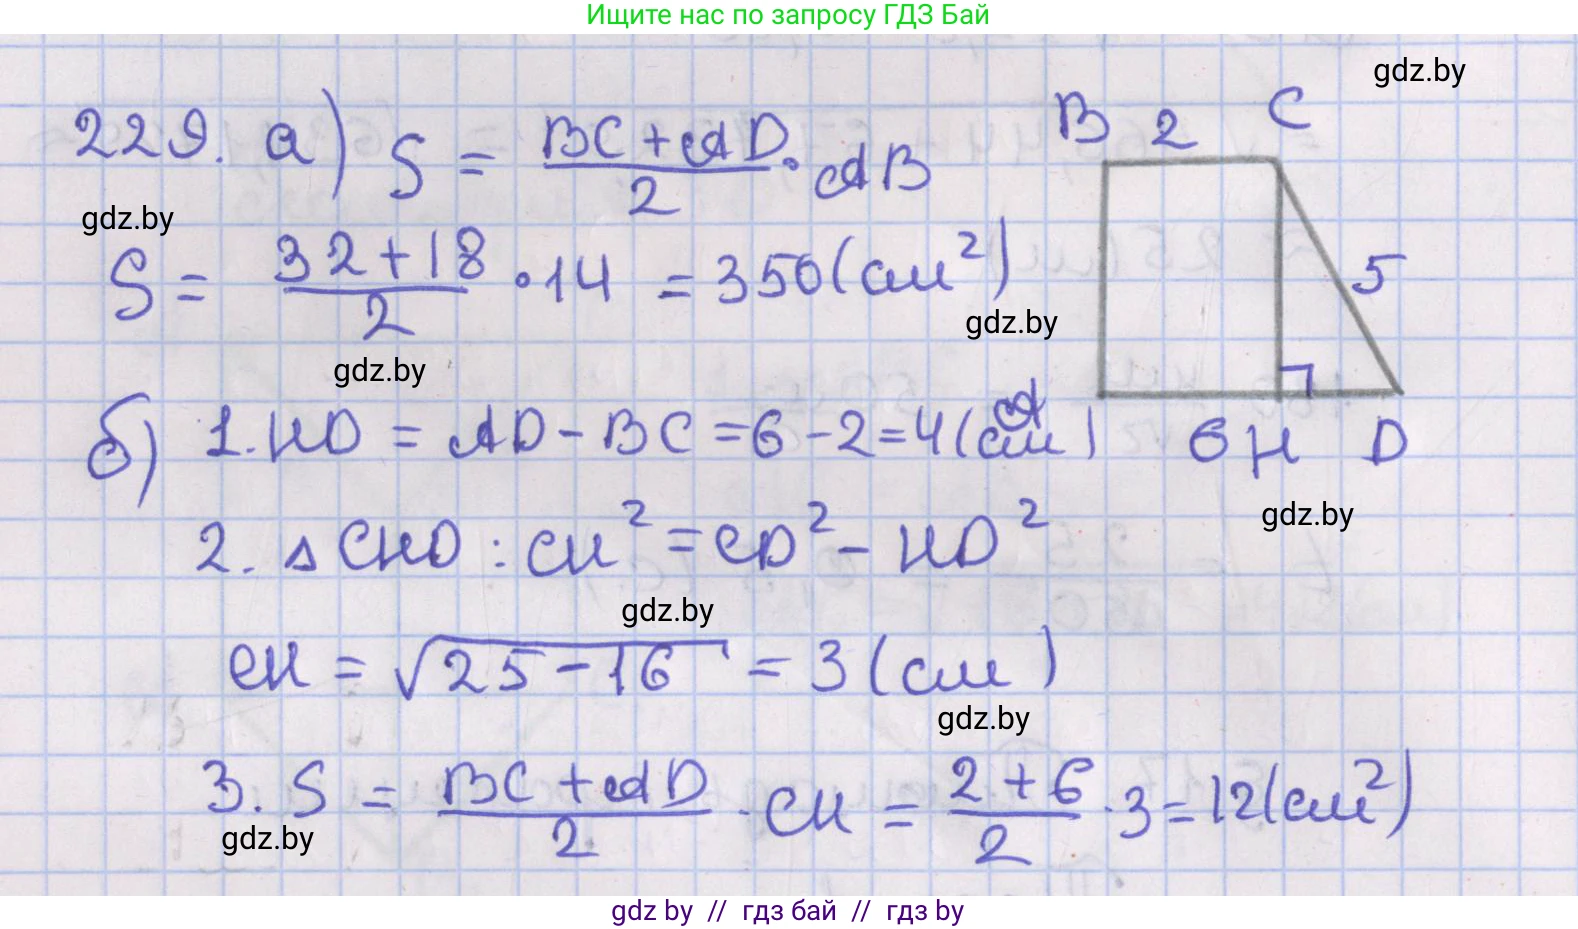 Ищите нас по запросу ГДЗ Бай
gdz.by
229. а) S = (BC + AD)/2 · AB
B 2 C
gdz.by
S = (32 + 18)/2 · 14 = 350 (см²)
5
gdz.by
gdz.by
A
б) 1. HD = AD - BC = 6 - 2 = 4 (см)
6 H D
gdz.by
2. Δ CHD : CH² = CD² - HD²
gdz.by
CH = √25 - 16 = 3 (см)
gdz.by
3. S = (BC + AD)/2 · CH = (2 + 6)/2 · 3 = 12 (см²)
gdz.by
gdz by // гдз бай // гдз by